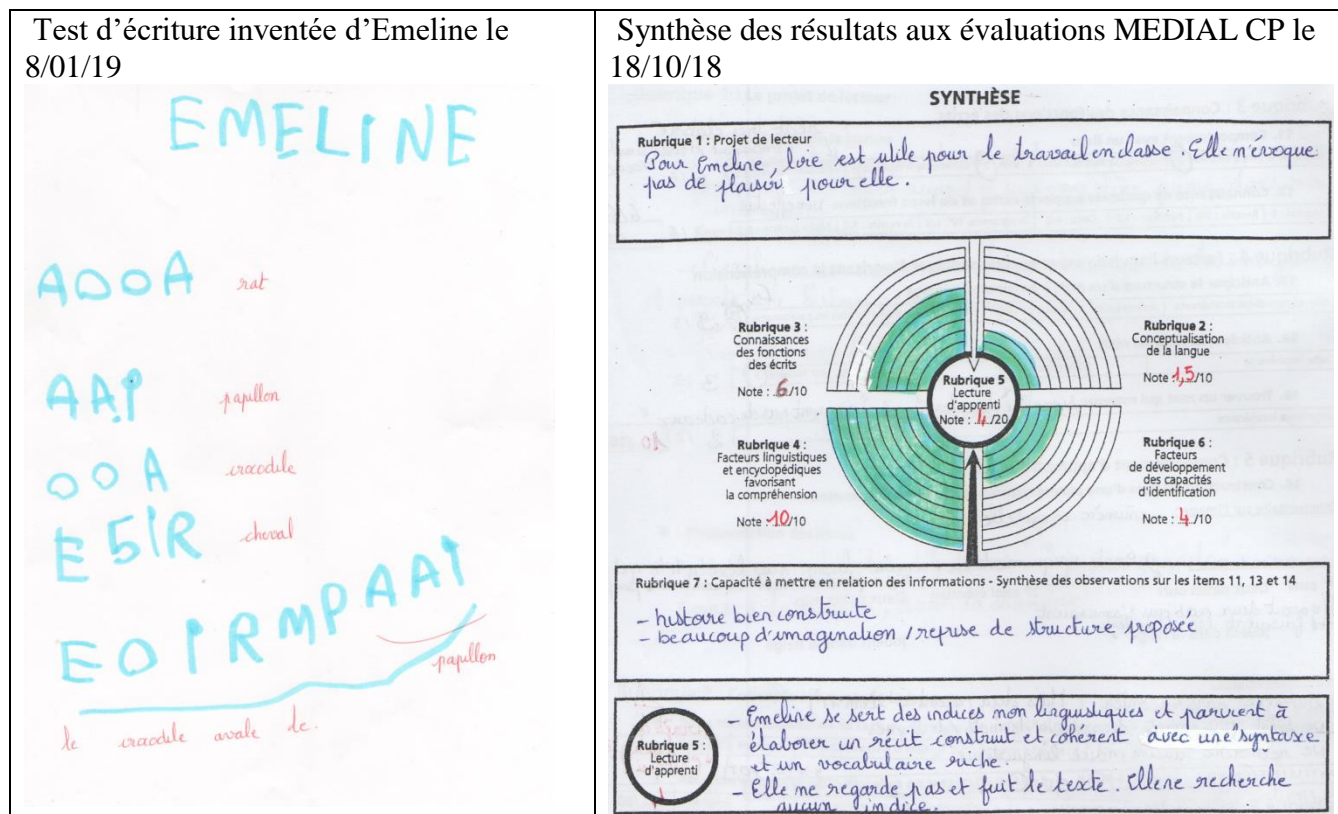 Test d'écriture inventée d'Emeline le
8/01/19
EMELINE
AOOA rat
AAP papillon
OOA crocodile
E5IR cheval
EOIRMPAAI
papillon
le crocodile avale le.
Synthèse des résultats aux évaluations MEDIAL CP le
18/10/18
SYNTHÈSE
Rubrique 1 : Projet de lecteur
Pour Emeline, lire est utile pour le travail en classe. Elle n'évoque
pas de plaisir pour elle.
Rubrique 3 :
Connaissances
des fonctions
des écrits
Note : 6/10
Rubrique 2 :
Conceptualisation
de la langue
Note : 1,5/10
Rubrique 5
Lecture
d'apprenti
Note : 4/20
Rubrique 4 :
Facteurs linguistiques
et encyclopédiques
favorisant
la compréhension
Note : 10/10
Rubrique 6 :
Facteurs
de développement
des capacités
d'identification
Note : 4/10
Rubrique 7 : Capacité à mettre en relation des informations - Synthèse des observations sur les items 11, 13 et 14
- histoire bien construite
- beaucoup d'imagination / reprise de structure proposée
Rubrique 5 :
Lecture
d'apprenti
- Emeline se sert des indices non linguistiques et parvient à
élaborer un récit construit et cohérent avec une syntaxe
et un vocabulaire riche.
- Elle ne regarde pas et fuit le texte. Elle ne recherche
aucun indice.